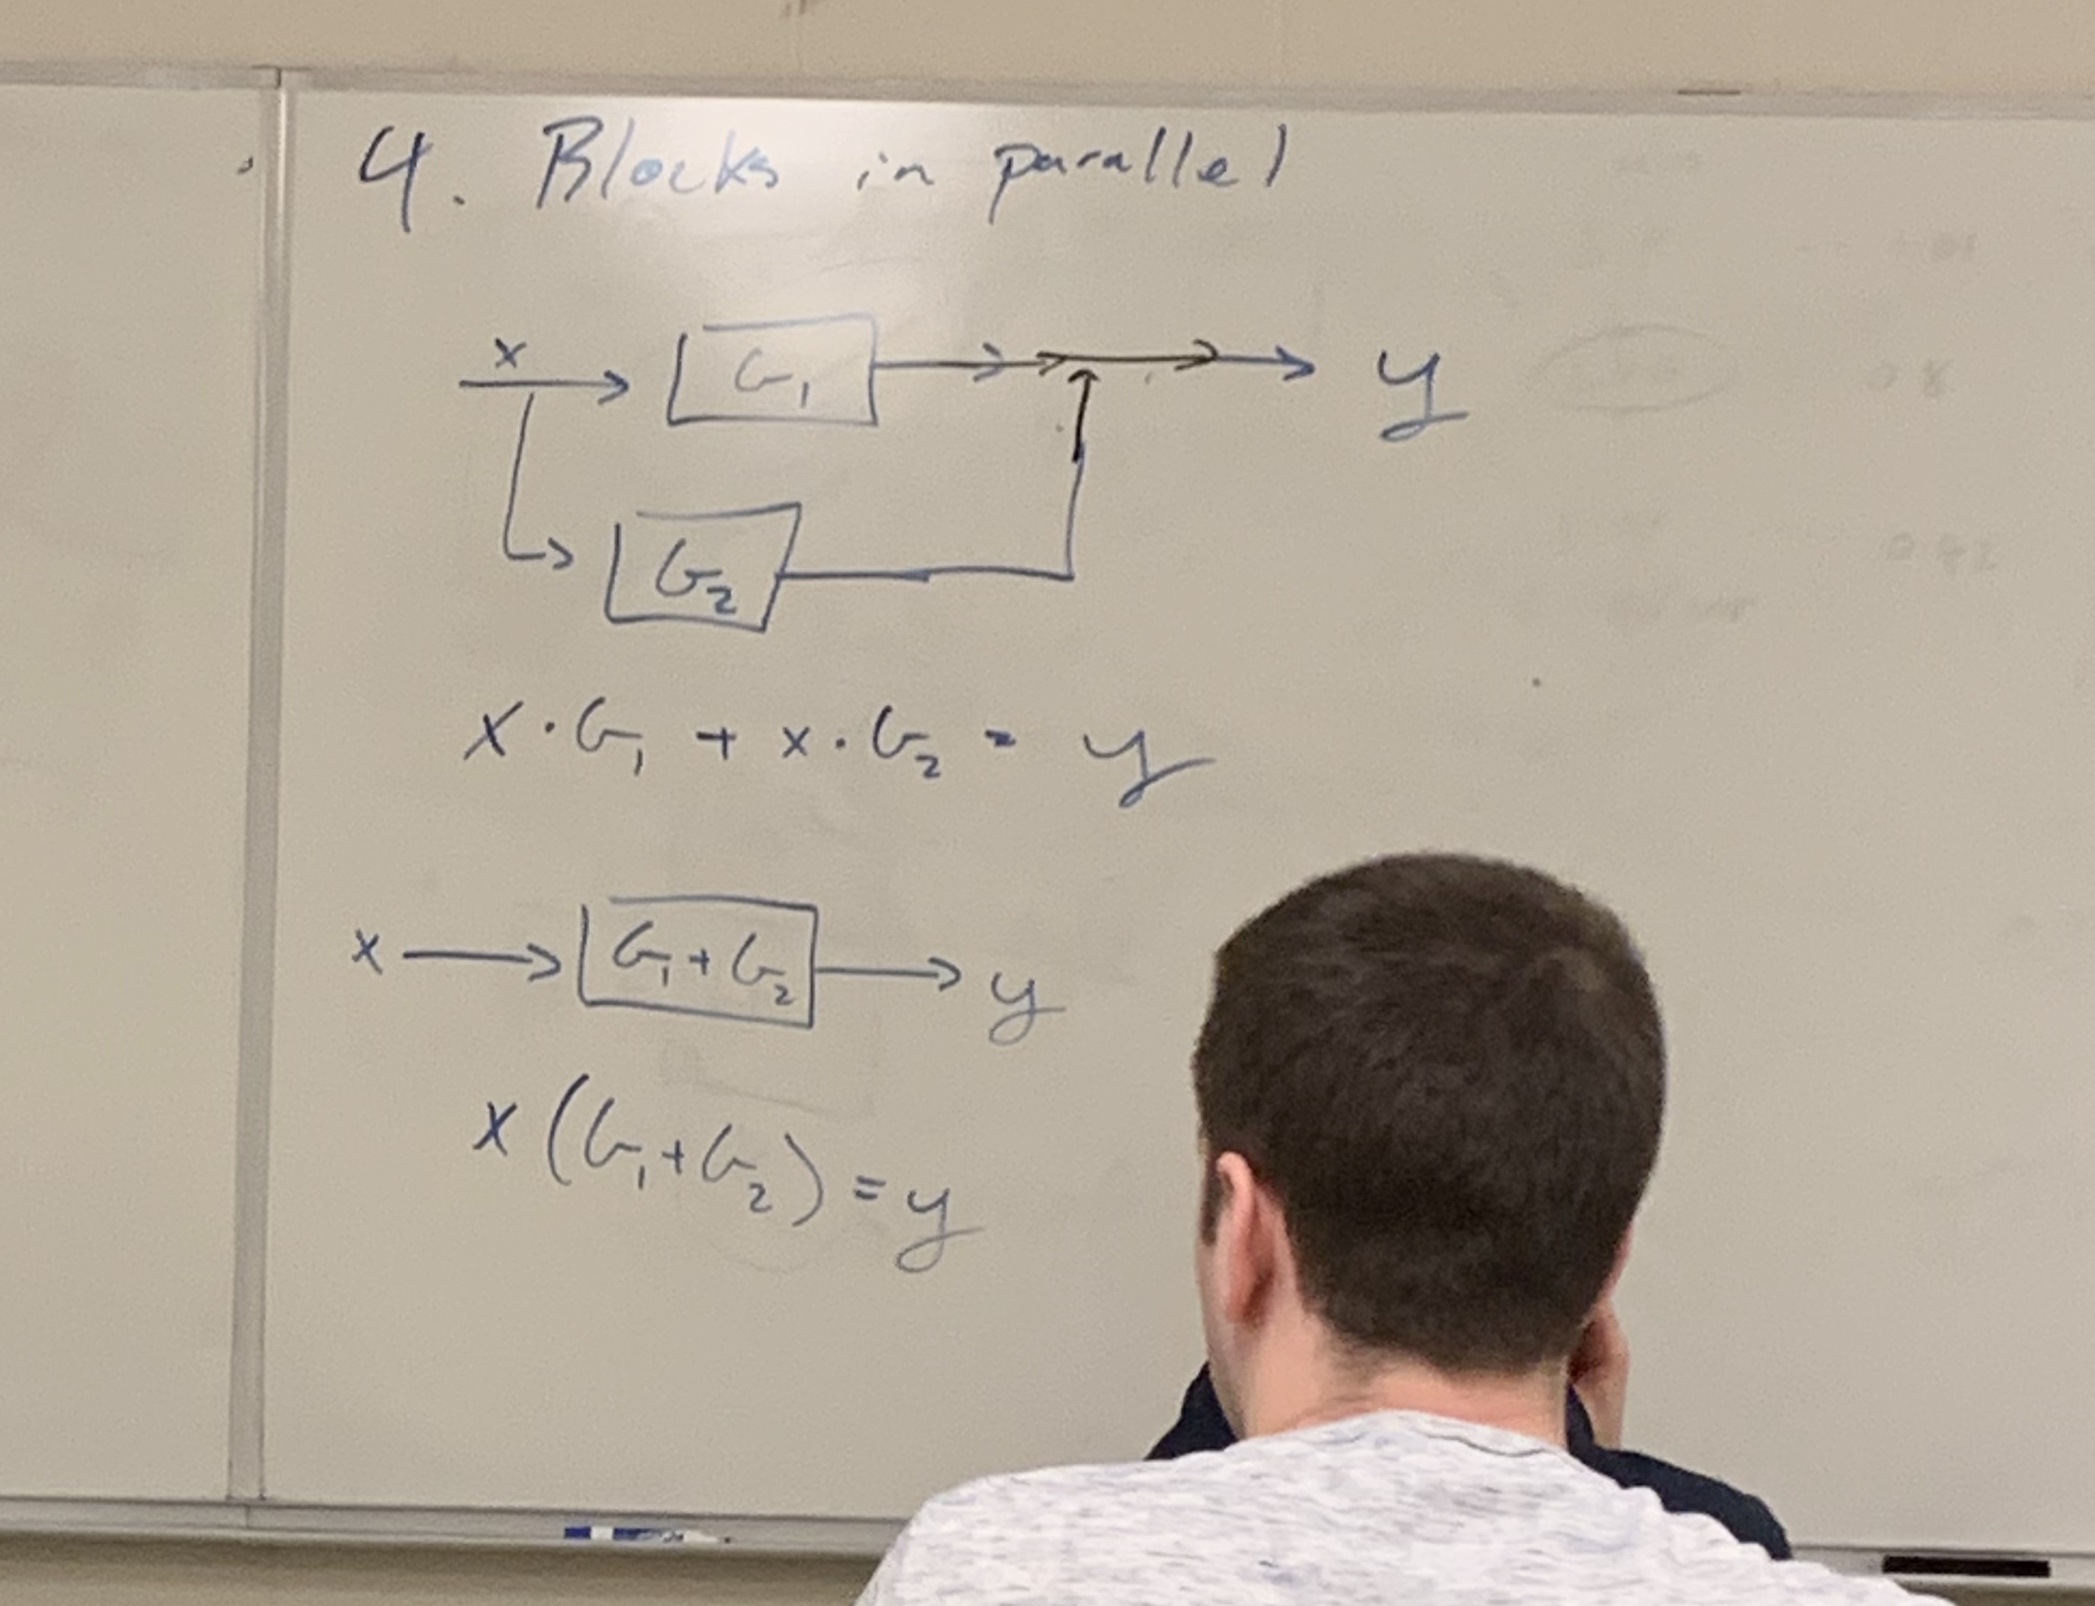 4. Blocks in parallel
x G₁ y
G₂
x · G₁ + x · G₂ = y
x G₁ + G₂ y
x (G₁ + G₂) = y